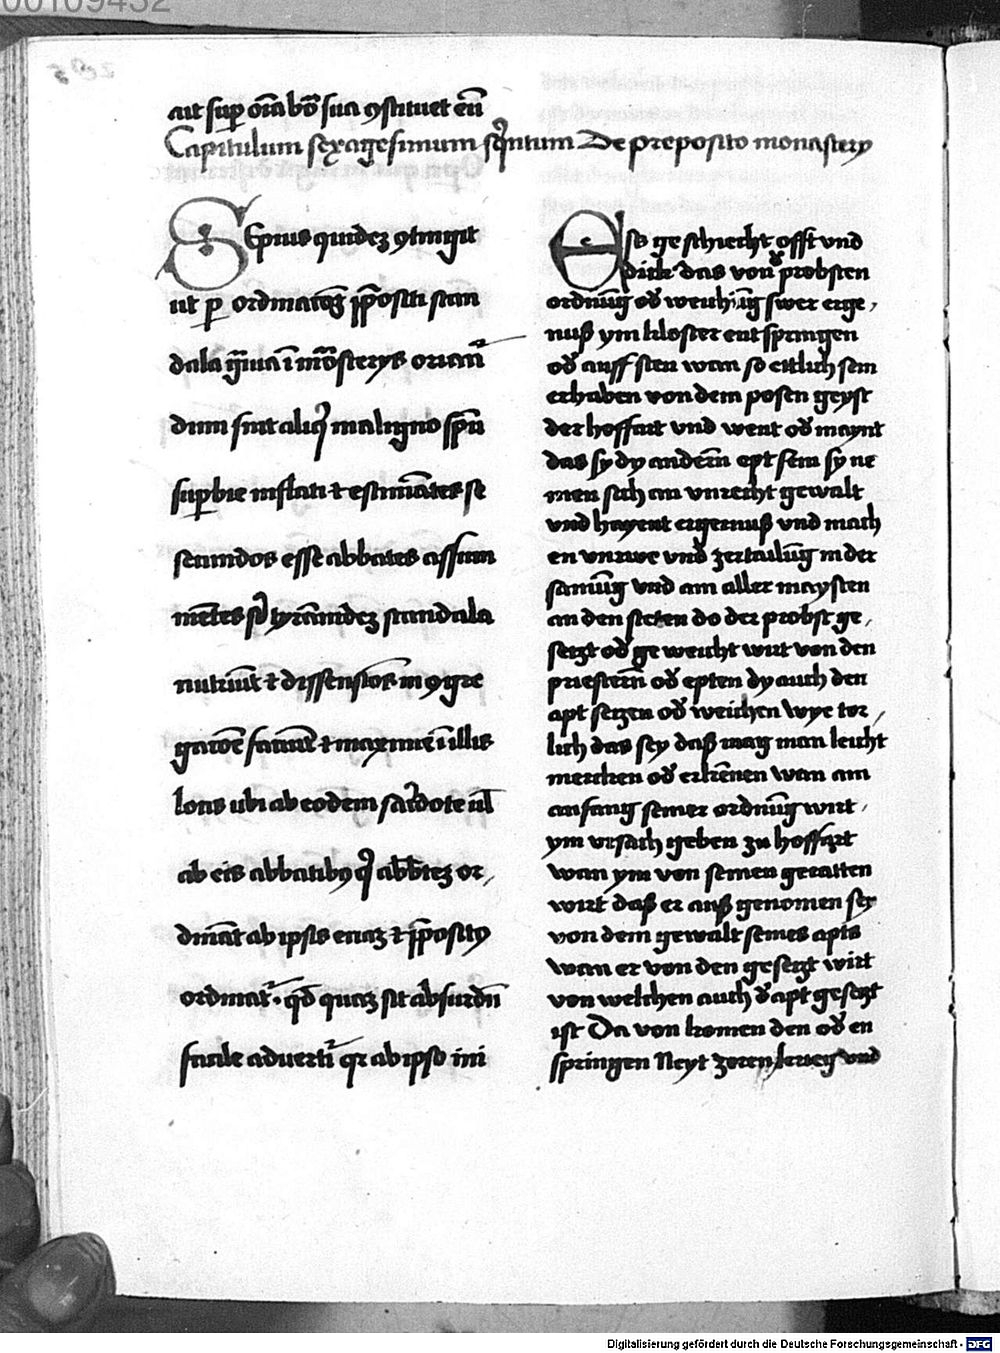 00109432
ait sup om̄ia bōa sua ꝯstituet eū
Capitulum sexagesimum qͥntum De preposito monastery
SEpius quidez ꝯtingit
ut p ordinatōꝫ p̄positi scan
dala gͣuia ī mōsterys orianᷓ
dum sint aliqͥ maligno spū
supbie inflati ⁊ estimātes se
secundos esse abbates assum
mētes sͥ tyrānidez scandala
nutriūt ⁊ dissensiōes in ꝯgre
gatōe faciūt ⁊ maxime ī illis
locis ubi ab eodem sacͬdote ul̄
ab eis abbatibꝰ qͥ abbtez or,
dināt ab ipsis eciaz ⁊ p̄positꝰ
ordinatͬ. qd̄ quaz sit absurdū
facile advertiͬ qꝛ ab ipso ini
ES ge schiecht offt vnd
dick das von d̕ probsten
ordnūg od̕ weichūg swer erge,
nuß ym kloster entspringen
od̕ auff sten wan so ettlich sein
erhaben von dem posen geyst
der hoffart vnd went od̕ maynt
das sy dy andern̄ ept sein sy ne
men sich an vnrecht gewalt
vnd hayent ergernuß vnd mach
en vnrwe vnd zertailūg in der
samūg vnd am aller maysten
an den steten do der probst ge,
setzt od̕ ge weicht wirt von den
priestern̄ od̕ epten dy auch den
apt setzen od̕ weichen wye tor,
lich das sey daß mag man leicht
mercken od̕ erkēnen wan am
anfang seiner ordnūg wirt,
ym vrsach geben zu hoffart
wan ym von seinen geratten
wirt daß er auß genomen sey
von dem gewalt seines apts
wan er von den gesetzt wirt
von welchen auch d̕ apt gesetzt
ist Da von komen den od̕ en
springen Neyt zoren krieg vnd
Digitalisierung gefördert durch die Deutsche Forschungsgemeinschaft - DFG